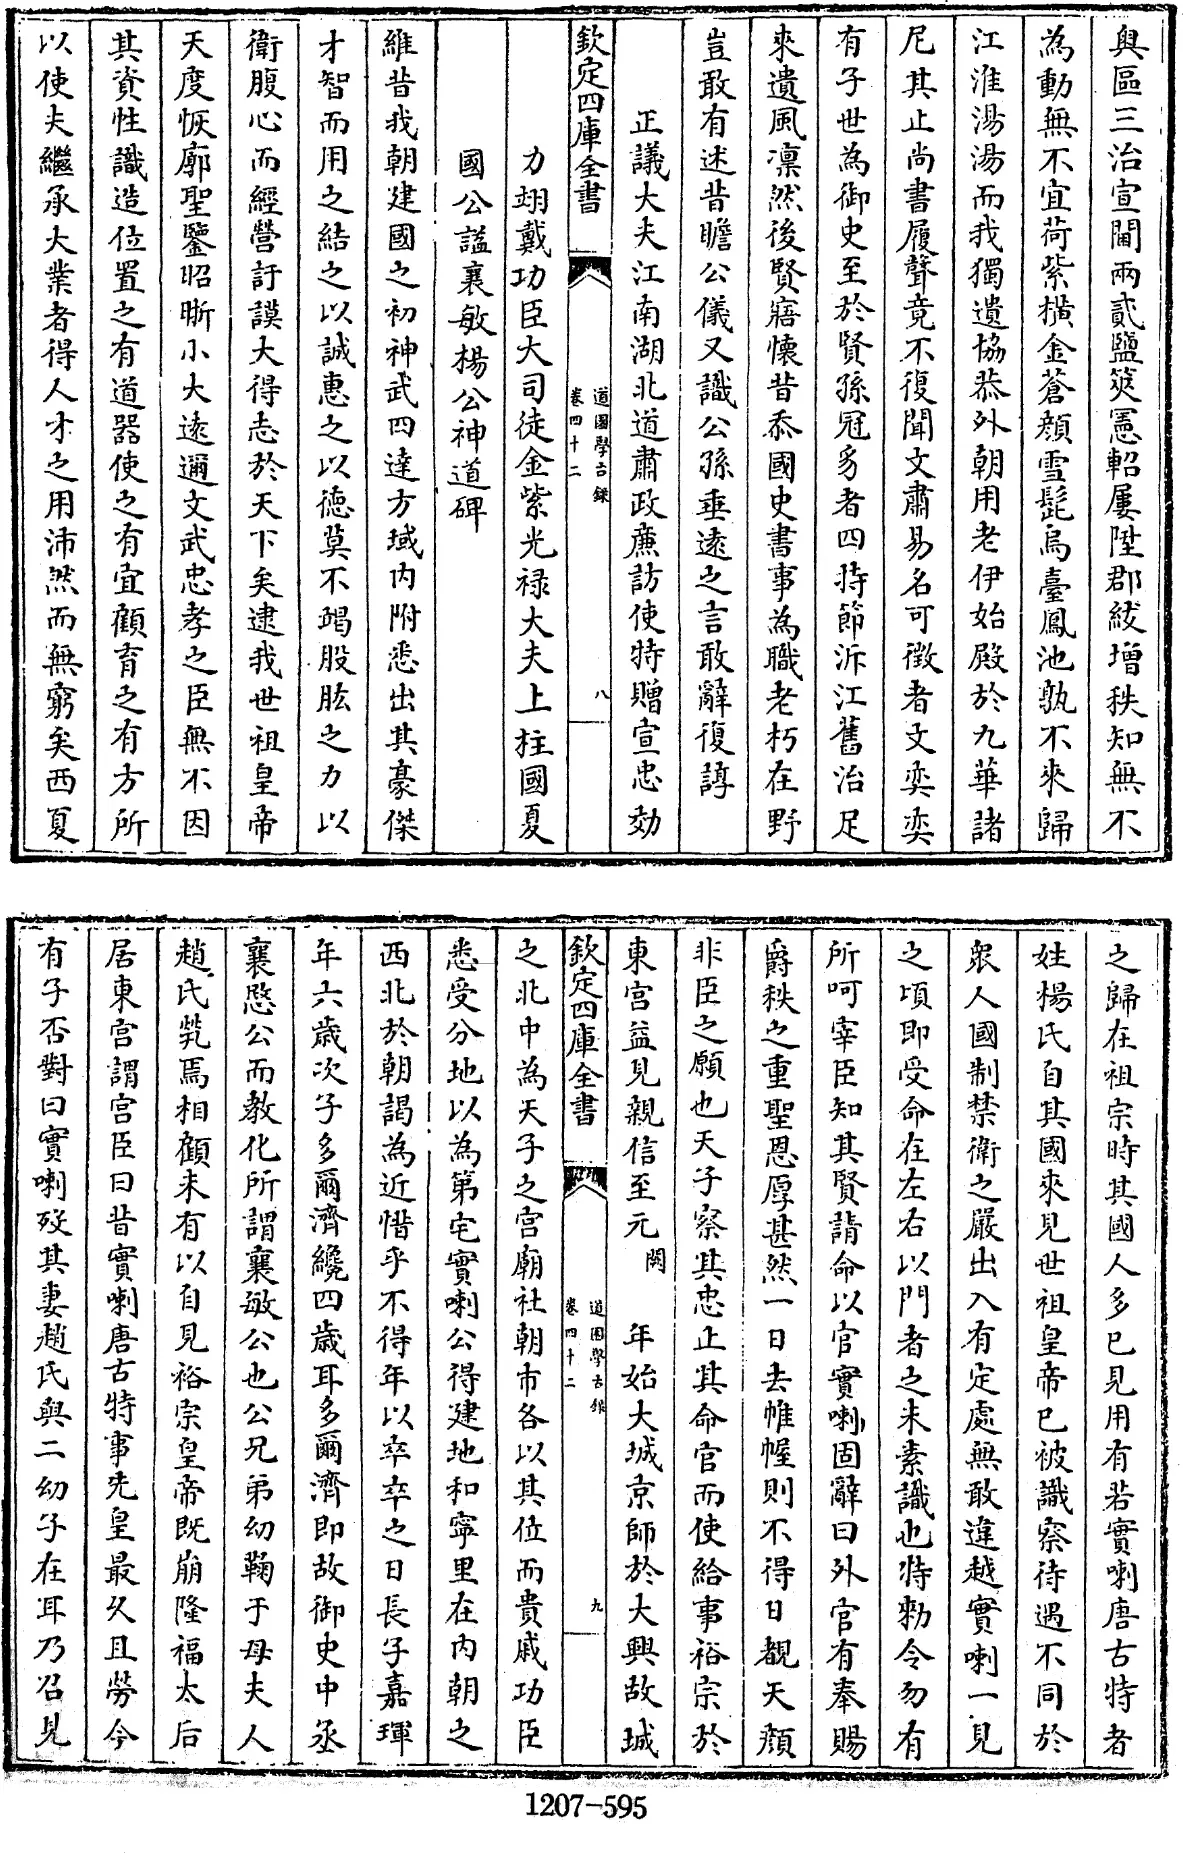 與區三治宣閫兩貳鹽筴憲軺屢陞郡紱增秩知無不
為動無不宜荷紫橫金蒼顏雪髭烏臺鳳池孰不來歸
江淮湯湯而我獨遺協恭外朝用老伊始殿於九華諸
尼其止尚書履聲竟不復聞文肅易名可徵者文奕奕
有子世為御史至於賢孫冠豸者四持節泝江舊治足
來遺風凜然後賢寤懷昔忝國史書事為職老朽在野
豈敢有述昔瞻公儀又識公孫垂遠之言敢辭復諄
正議大夫江南湖北道肅政廉訪使特贈宣忠効
欽定四庫全書
道園學古錄
卷四十二
八
力翊戴功臣大司徒金紫光禄大夫上柱國夏
國公諡襄敏楊公神道碑
維昔我朝建國之初神武四達方域内附悉出其豪傑
才智而用之結之以誠惠之以德莫不竭股肱之力以
衛腹心而經營訏謨大得志於天下矣逮我世祖皇帝
天度恢廓聖鑒昭晣小大逺邇文武忠孝之臣無不因
其資性識造位置之有道器使之有宜顧育之有方所
以使夫繼承大業者得人才之用沛然而無窮矣西夏
之歸在祖宗時其國人多已見用有若實喇唐古特者
姓楊氏自其國來見世祖皇帝已被識察待遇不同於
衆人國制禁衛之嚴出入有定處無敢違越實喇一見
之頃即受命在左右以門者之未素識也特勅令勿有
所呵宰臣知其賢請命以官實喇固辭曰外官有奉賜
爵秩之重聖恩厚甚然一日去帷幄則不得日覩天顔
非臣之願也天子察其忠止其命官而使給事裕宗於
東宫益見親信至元闕年始大城京師於大興故城
欽定四庫全書
道園學古錄
卷四十二
九
之北中為天子之宫廟社朝市各以其位而貴戚功臣
悉受分地以為第宅實喇公得建地和寧里在内朝之
西北於朝謁為近惜乎不得年以卒卒之日長子嘉琿
年六歲次子多爾濟纔四歲耳多爾濟即故御史中丞
襄愍公而教化所謂襄敏公也公兄弟幼鞠于母夫人
趙氏煢焉相顧未有以自見裕宗皇帝既崩隆福太后
居東宫謂宫臣曰昔實喇唐古特事先皇最久且勞今
有子否對曰實喇歿其妻趙氏與二幼子在耳乃召見
1207-595